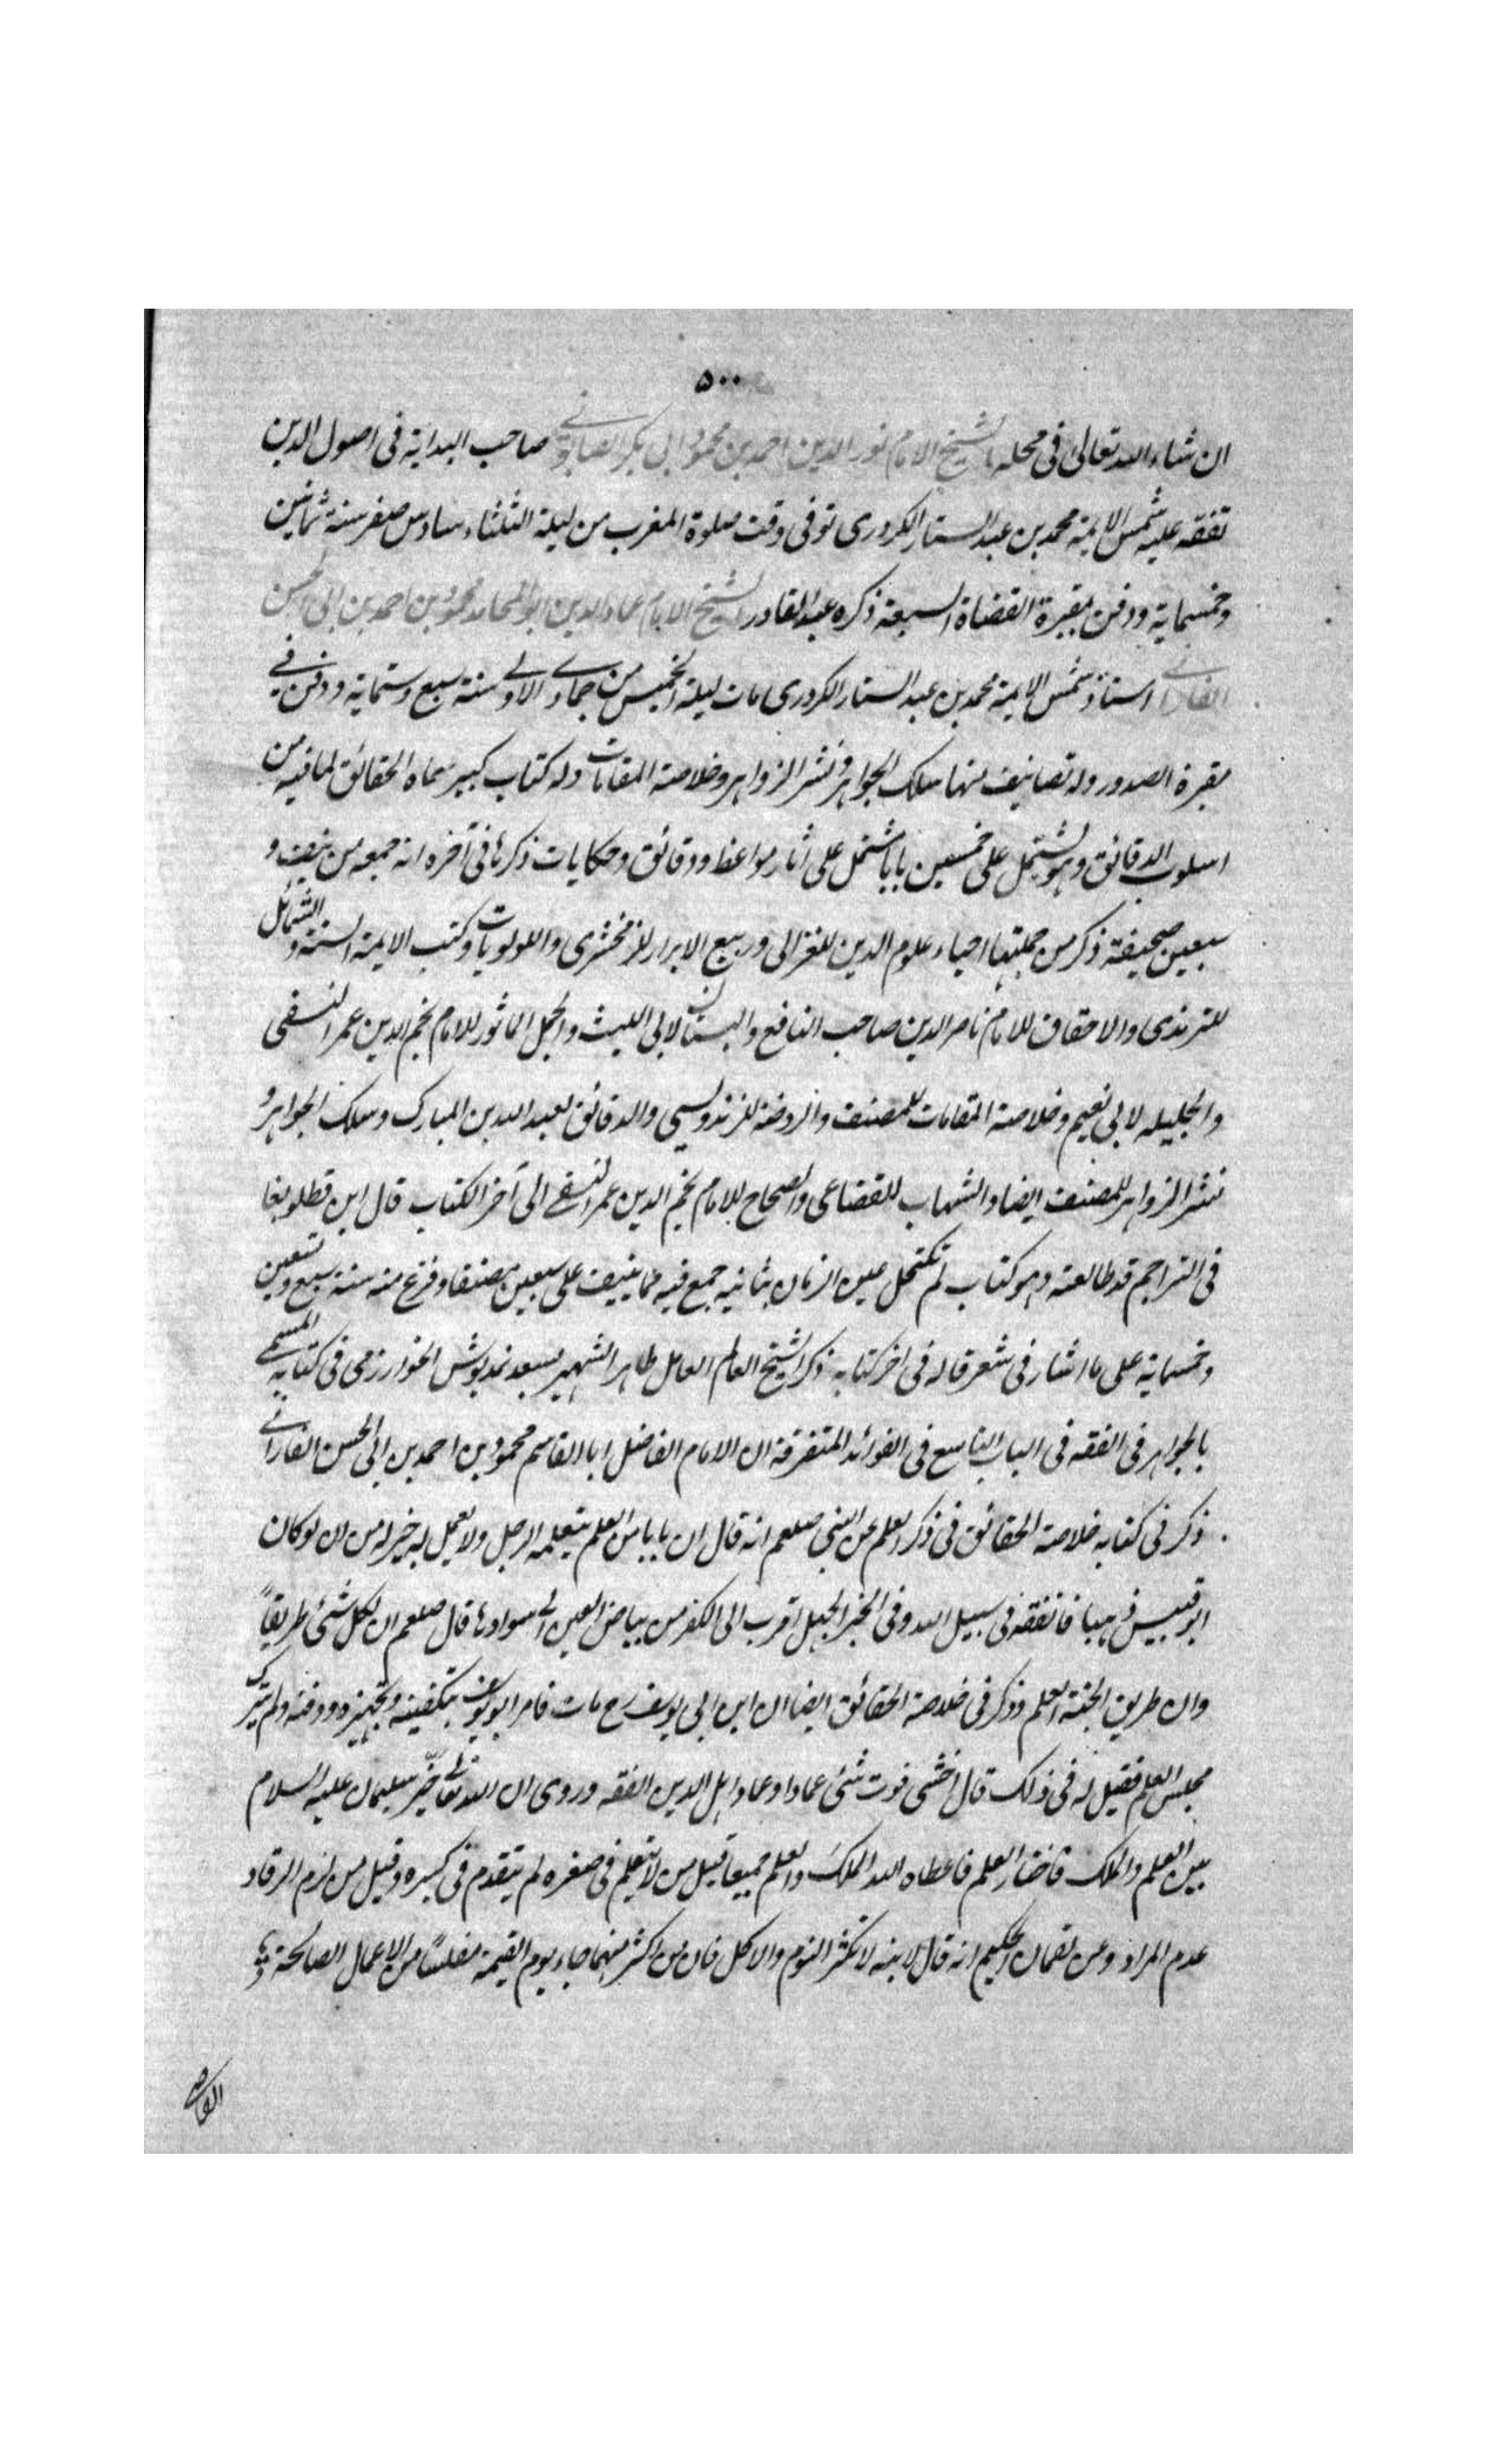 ٥٠٠
ان شاء الله تعالى فى محله الشيخ الامام نور الدين احمد بن محمود ابى بكر الصابونے صاحب البداية فى اصول الدين
تفقه عليه شمس الايمة محمد بن عبد الستار الكردرى توفى وقت صلوة المغرب من ليلة الثلثاء سادس صفر سنة ثمانين
وخمسماية ودفن بمقبرة القضاة السبعة ذكره عبد القادر الشيخ الامام عماد الدين ابو المحامد محمود بن احمد بن ابى الحسن
الفارابے استاذ شمس الايمة محمد بن عبد الستار الكردرى مات ليلة الخميس من جمادے الاولے سنة سبع وستماية ودفن فے
مقبرة الصدور وله تصانيف منها سلك الجواهر ونشر الزواهر وخلاصة المقامات وله كتاب كبير سماه الحقائق لمافيه من
اسلوب الدقائق وهو يشتمل على خمسين بابا يشتمل على اثار مواعظ ودقائق وحكايات ذكرها فى آخره انه جمعه من نيف و
سبعين صحيفة ذكر من جملتها احياء علوم الدين للغزالى وربيع الابرار للزمخشرى واللولويات وكتب الايمة الستة والشمائل
للترمذى والاحقاق للامام ناصر الدين صاحب النافع والبستان لابى الليث والجمل الماثور للامام نجم الدين عمر النسفى
والجليله لابى نعيم وخلاصة المقامات للمصنف والروضة للزندويسى والدقائق لعبد الله بن المبارك وسلك الجواهر و
نشر الزواهر للمصنف ايضا والشهاب للقضاعى والصحاح للامام نجم الدين عمر النسفے الى آخر الكتاب قال ابن قطلوبغا
فى التراجم قد طالعته وهو كتاب لم تكتحل عين الزمان بثانيه جمع فيه مما ينيف على سبعين مصنفا وفرغ منه سنة سبع وتسعين
وخمسماية على ما اشار فى شعر قاله فى اخر كتابه ذكر الشيخ العالم العامل طاهر الشهير بسعد نمدپوش الخوارزمى فى كتابه المسمے
بالجواهر فى الفقه فى الباب التاسع فى الفوائد المتفرقة ان الامام الفاضل ابا القاسم محمود بن احمد بن ابى الحسن الفارابے
ذكر فى كتابه خلاصة الحقائق فى ذكر العلم عن النبى صلعم انه قال ان بابا من العلم يتعلمه الرجل ولا يعمل به خير له من ان لو كان
ابو قبيس ذهبا فانفقه فى سبيل الله وفى الخبر الجهل اقرب الى الكفر من بياض العين الے سوادها قال صلعم ان لكل شئ طريقاً
وان طريق الجنة العلم وذكر فى خلاصة الحقائق ايضا ان ابن ابى يوسف رح مات فامر ابو يوسف بتكفينه وتجهيزه ودفنه ولم يترك
مجلس العلم فقيل له فى ذلك قال اخشى فوت شئ عمادا وعماد اهل الدين الفقه وروى ان الله تعالے خيّر سليمان عليه السلام
بين العلم والملك فاختار العلم فاعطاه الله الملك والعلم جميعا قيل من لا يتعلم فى صغره لم يتقدم فى كبره وقيل من لزم الرقاد
عدم المراد وعن لقمان الحكيم انه قال لابنه لا تكثر النوم والاكل فان من اكثر منهما جاء يوم القيمة مفلسًا من الاعمال الصالحة